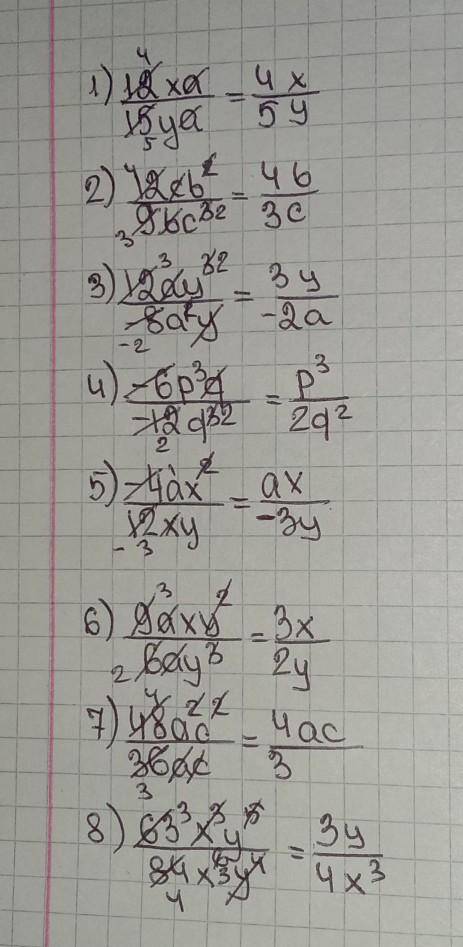 1) 12xa/15ya = 4x/5y
2) 12cb²/9bc³ = 4b/3c
3) 12ay³/-8a²y = 3y/-2a
4) -6p³q/-12q³ = p³/2q²
5) -4ax²/12xy = ax/-3y
6) 9axy²/6ay³ = 3x/2y
7) 48a²c²/36ac = 4ac/3
8) 63x³y⁵/84x⁶y⁴ = 3y/4x³